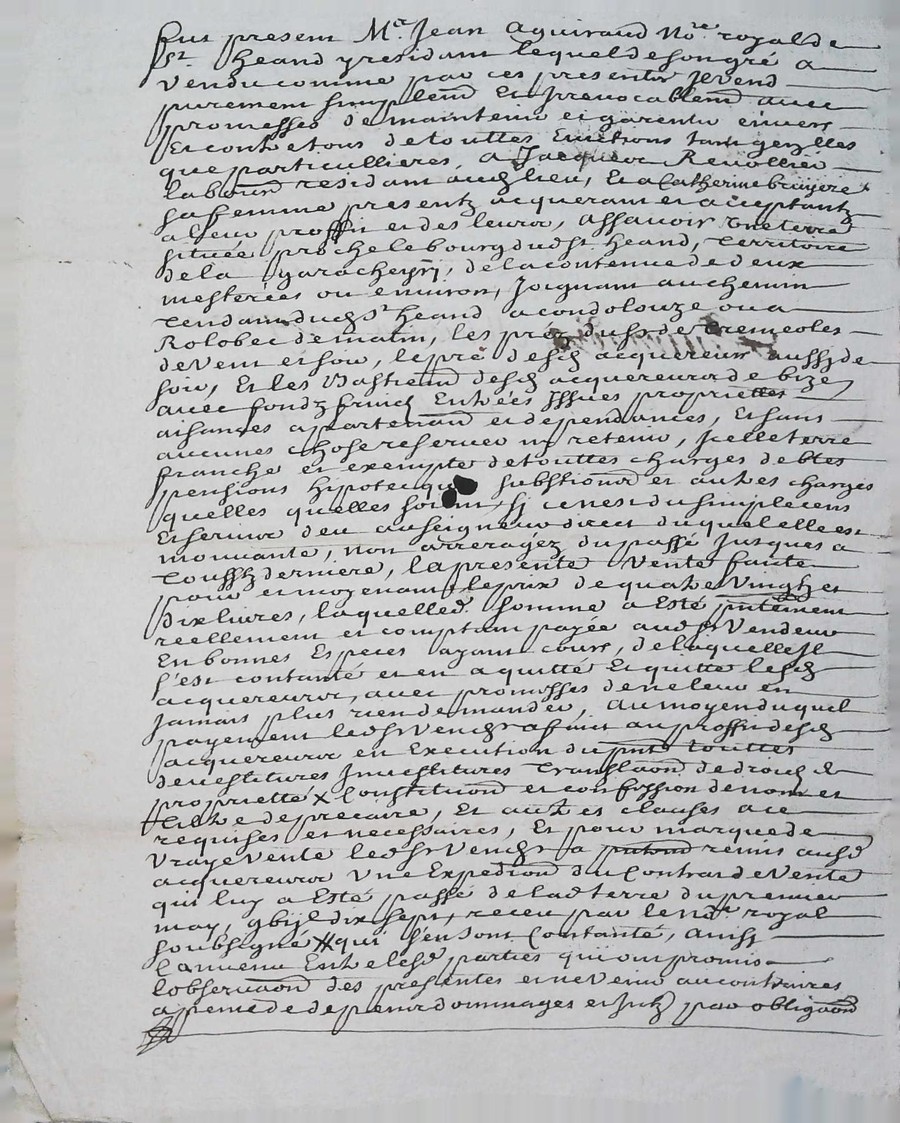 Fut present Mr. Jean aguiraud No.re royal de
St. heand y residant lequel de son gré a
vendu comme par ces presentes Jl vend
purement simplemt Et Jrrevocablemt avec
promesses de maintenir et garentir envers
Et contre tous de touttes Evictions tant gnalles
que particullieres, a Jacques Revollier
laboureur residant audt lieu, Et a Catherine bruyere
sa femme presents acquerant et acceptants
a leur proffit et des leurs, assavoir Une terre
située proche le bourg dudt St. heand, Territoire
de la garacheyri, de la contenue de deux
mesterées ou environ, Joignant au chemin
tendant dudt St heand a condolouze ou a
Rolobec de matin, les prés du Sr de Cremeoles
de vent et soir, le pré desdt acquereurs aussy de
soir, Et les Bastiemt desdt acquereurs de bize
avec fondz fruictz Entrées Jssues proprietles
aisances appartenances et dependances, Et sans
aucunes chose reserver ny retenir, Jcelle terre
franche et exempte de touttes charges debtes
pensions hipoteques substitions et autres charges
quelles quelles soient, sy ce nest du simple cens
Et servis deu au seigneur direct duquel elle est
mouvante, non arreragéz du passé Jusques a
Toussts derniere, la presente Vente faite
pour et moyenant le prix de quatre Vingtz et
dix livres, laquelled. somme a Esté pntement
reellement et comptant payée audt Sr Vendeur
En bonnes Especes ayant cours, de laquelle Jl
s'est contanté et en a quitté Et quitte lesdt
acquereurs, avec promesses de ne leur en
Jamais plus rien demander, au moyen duquel
payement ledt Sr Vendr a fait au proffit desdt
acquereurs en Execution du pnt touttes
devestitures Jnvestitures Translaon de droits de
proprietté X Constitution et confession de nom et
tiltre de precaire, Et autres clauses a ce
requises et necessaires, Et pour marque de
Vraye Vente ledt Sr Vendr a remis ausdt
acquereurs Une Expedion du Contrat de Vente
qui luy a Esté passé de ladt terre du premier
may, gbijc dix sept, receu par le noe royal
soubsigné XX qui s'en sont Contanté, ainsy
Convenu Entre lesdt parties qui ont promis
l'observaon des presentes et ne venir au contraires
a peine de depens dommages et Jntz par obligaon